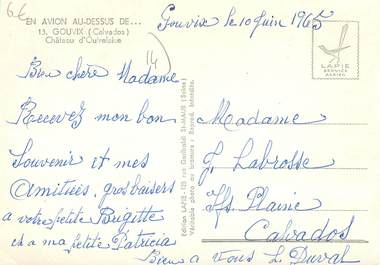 6€
EN AVION AU-DESSUS DE...
13. GOUVIX (Calvados)
Château d'Outrelaise
14
Gouvix le 10 Juin 1965
LAPIE
SERVICE
AÉRIEN
Bien chère Madame
Recevez mon bon
Souvenir et mes
Amitiées, gros baisers
a votre petite Brigitte
et a ma petite Patricia
Bien a vous L. Duval
Edition LAPIE - 125 rue Garibaldi St-MAUR (Seine)
Véritable photo au bromure : Reprod. interdite.
Madame
J. Labrosse
Ifs. Plaine
Calvados